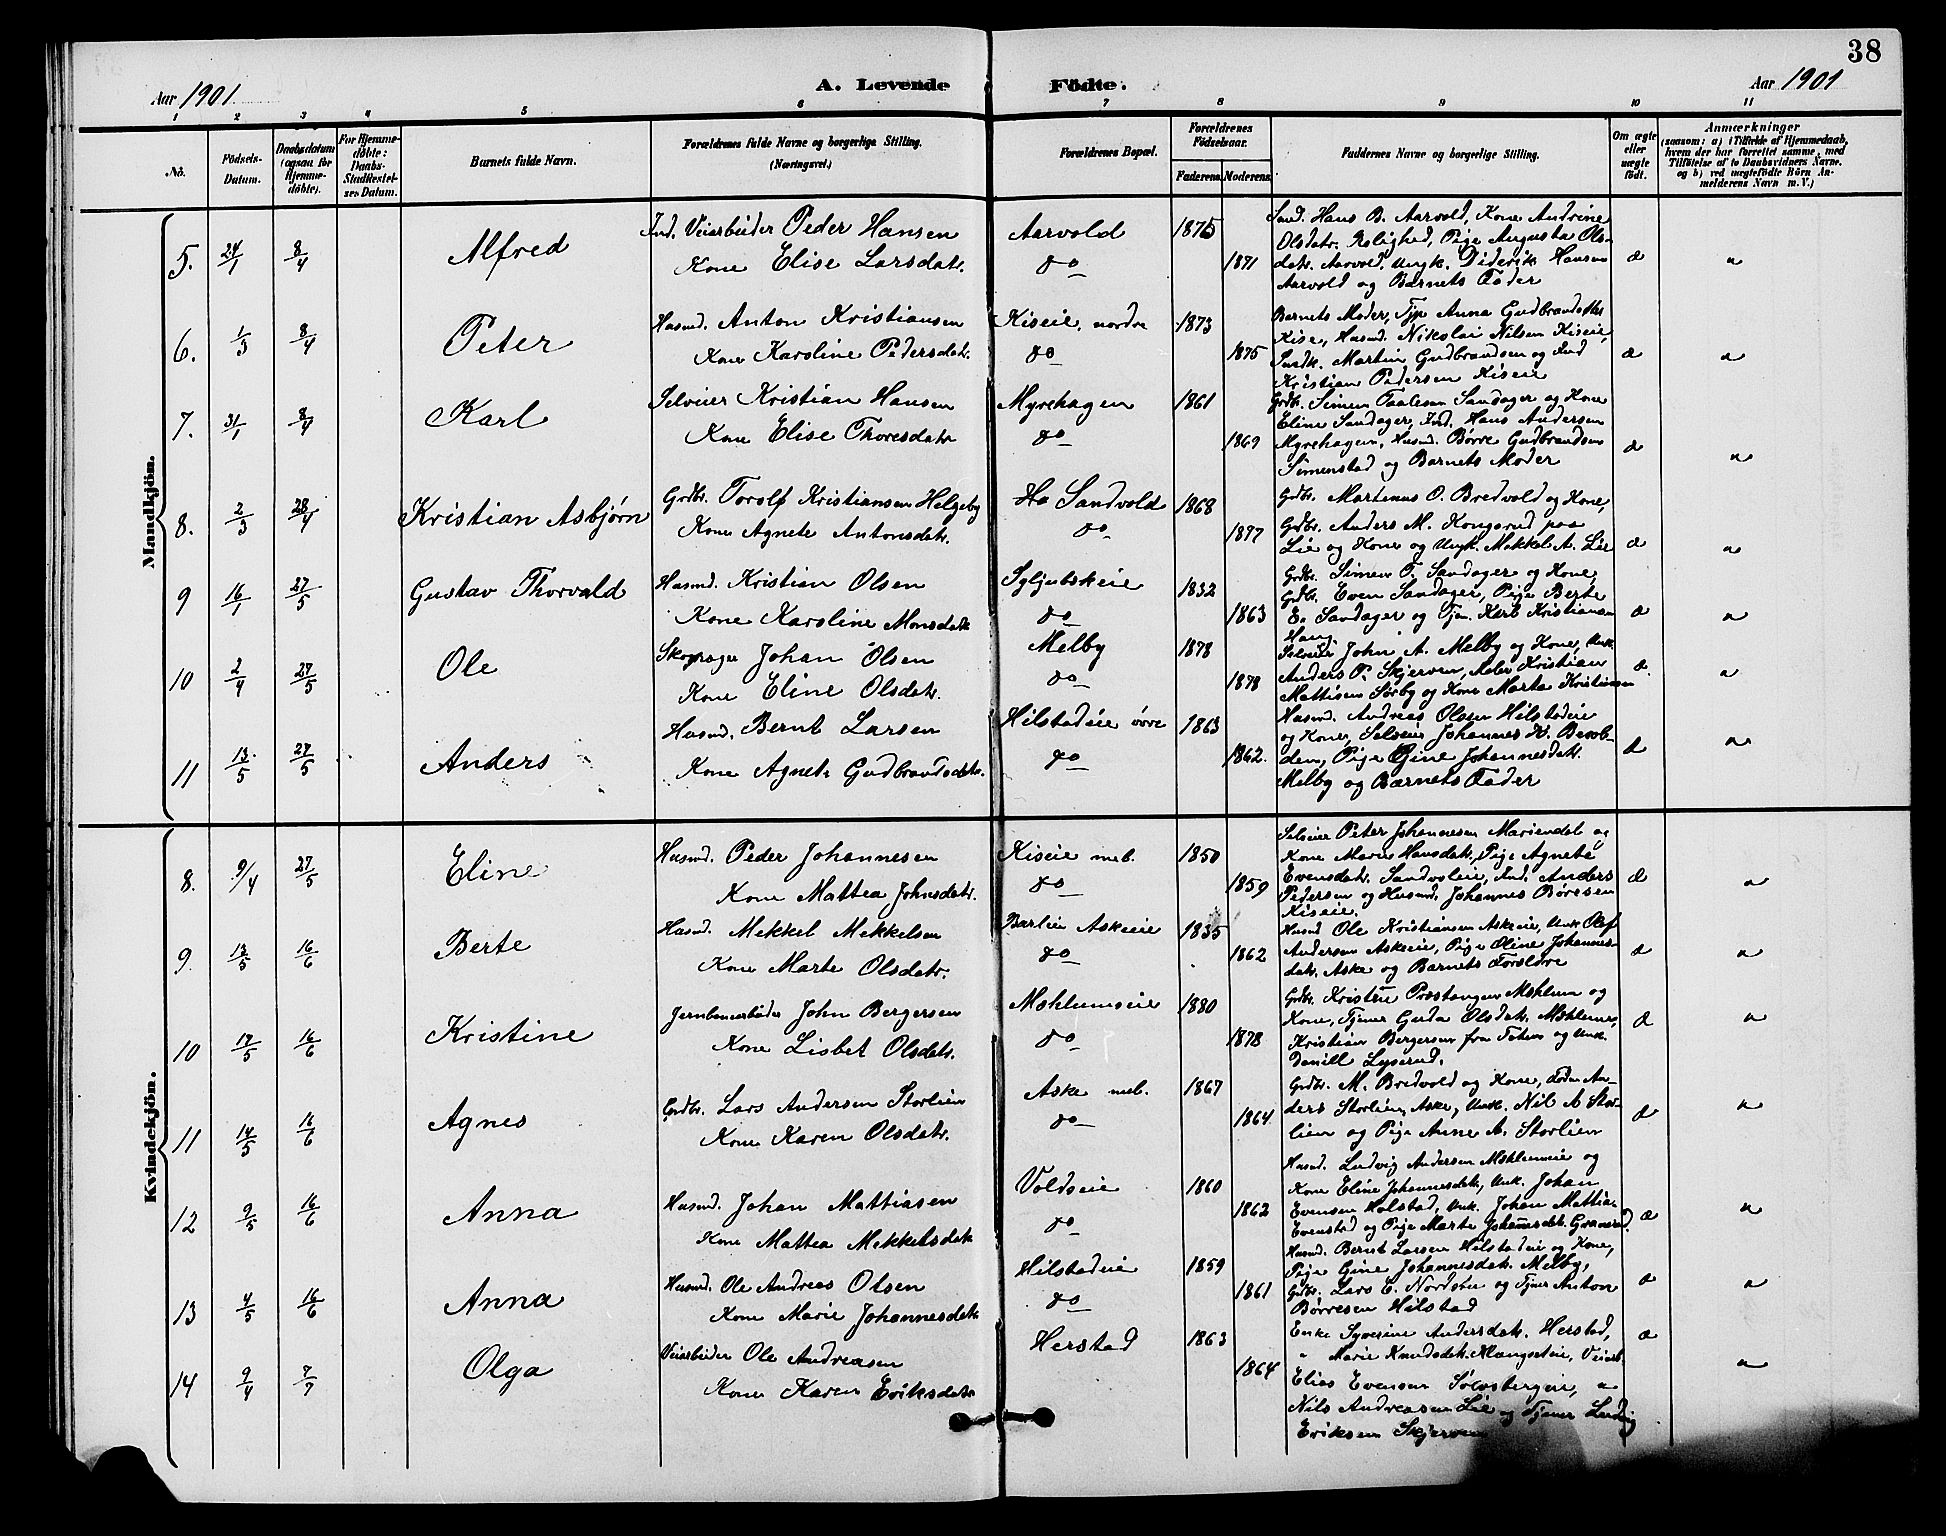 38
Aar 1901
A. Levende Födte.
Aar 1901
1 2 3 4 5 6 7 8 9 10 11
No.
Födsels-Datum.
Daabsdatum (ogsaa for Hjemme-döbte).
For Hjemme-döbte: Daabs-Stadfæstel-ses Datum.
Barnets fulde Navn.
Forældrenes fulde Navne og borgerlige Stilling. (Næringsvei.)
Forældrenes Bopæl.
Forældrenes Födselsaar.
Faderens. Moderens.
Faddernes Navne og borgerlige Stilling.
Om ægte eller uægte födt.
Anmærkninger
(saasom: a) i Tilfælde af Hjemmedaab, hvem der har forrettet samme, med Tilföielse af to Daabsvidners Navne, og b) ved uægtefödte Börn An-melderens Navn m. V.)
Mandkjön.
5. 24/1 8/4 Alfred
Ind. Veiarbeider Peder Hansen
Kone Elise Larsdatr.
Aarvold
do
1875
1871
Hans B. Aarvold, Kone Andrine
Olsdatr. Rolighed, Pige Augusta Ols-
datr. Aarvold, Ungk. Diderik Hansen
Aarvold og Barnets Fader
æ
"
6. 1/3 8/4 Peter
Husmd. Anton Kristiansen
Kone Karoline Pedersdatr.
Kiseie, nordre
do
1873
1875
Barnets Moder, Tje Anna Gudbrandsdtr
Kise, Husmd. Nikolai Nilsen Kiseie,
Martin Gudbrandsen og Ind
Kristian Pedersen Kiseie
æ
"
7. 31/1 8/4 Karl
Selveier Kristian Hansen
Kone Elise Thoresdatr
Myrehagen
do
1861
1869
Grdbr. Simen Taalesen Sandager og Kone
Eline Sandager, Ind. Hans Andersen
Myrehagen, Husmd. Børre Gudbrandsen
Simenstad og Barnets Moder
æ
"
8. 2/3 28/4 Kristian Asbjørn
Grdbr. Torolf Kristiansen Helgeby
Kone Agnete Antonsdatr.
Ho Sandvold
do
1868
1877
Grdbr. Martinus O. Bredvold og Kone,
Grdbr. Anders M. Kongsrud paa
Lie og Kone og Ungk. Mekkel A. Lie
æ
"
9 16/1 27/5 Gustav Thorvald
Husmd. Kristian Olsen
Kone Karoline Monsdatr
Syljubskeie
do
1832
1863
Grdbr. Simen T. Sandager og Kone,
Grdbr. Even Sandager, Pige Berte
E. Sandager og Tjen. Karl Kristiansen
Haug.
æ
"
10 2/4 27/5 Ole
Johan Olsen
Kone Eline Olsdatr.
Melby
do
1878
1878
Selveier John A. Melby og Kone, Unk.
Anders P. Skjerven, Kristian
Mattisen Sørby og Kone Marta Kristiansen
æ
"
11 13/5 27/5 Anders
Husmd. Bernt Larsen
Kone Agnete Gudbrandsdatr.
Hilstadeie øvre
do
1863
1862.
Husmd. Andreas Olsen Hilstadeie
og Kone, Selveier Johannes H.
Pige Gine Johannesdatr.
Melby og Barnets Fader
æ
"
Kvindekjön.
8. 9/4 27/5 Eline
Husmd. Peder Johannesen
Kone Mattea Johnsdatr.
Kiseie mel.
do
1850
1859
Selveier Peter Johannesen Mariendal og
Kone Maren Hansdatr, Pige Agnete
Evensdatr. Sandvoleie, Ind. Anders
Pedersen og Husmd. Johannes Børresen
Kiseie.
æ
"
9. 13/5 16/6 Berte
Husmd. Mekkel Mekkelsen
Kone Marte Olsdatr.
Barlien Askeeie
do
1835
1862
Husmd Ole Kristiansen Askeeie, Unk Olaf
Andersen Askeeie, Pige Oline Johannes-
datr. Aske og Barnets Forældre
æ
"
10 17/5 16/6 Kristine
Jernbanearbeider John Bergersen
Kone Lisbet Olsdatr.
Mæhlumseie
do
1880
1878
Grdbr. Præstangen Mæhlum og
Kone, Tjener Gerda Olsdatr. Mæhlum,
Kristian Bergersen fra Toten og Unk.
Daniel Lyserud.
æ
"
11 14/5 16/6 Agnes
Grdbr. Lars Andersen Storlien
Kone Karen Olsdatr.
Aske mel.
do
1867
1864
Grdbr. M. Bredvold og Kone, An-
ders Storlien, Aske, Unk. Nil A Stor-
lien og Pige Anne A. Storlien
æ
"
12 9/5 16/6 Anna
Husmd. Johan Mattiasen
Kone Mattea Mekkelsdatr
Voldseie
do
1860
1862
Husmd. Ludvig Andersen Mæhlumseie og
Kone Eline Johannesdatr, Unk. Johan
Evensen Holstad, Unk. Johan Mattias
Evenstad og Pige Marte Johannesdatr. Granerud.
æ
"
13 4/5 16/6 Anna
Husmd. Ole Andreas Olsen
Kone Marie Johannesdatr
Hilstadeie
do
1859
1861
Husmd. Bernt Larsen Hilstadeie og Kone,
Pige Gine Johannesdatr. Melby,
Grdbr. Lars E. Nordsten og Tjener Anton
Børresen Hilstad
æ
"
14 9/4 7/7 Olga
Veiarbeider Ole Andreasen
Kone Karen Eriksdatr
Herstad
1863
1864
Enke Syverine Andersdatr. Herstad,
" Marie Knudsdatr. Veiarb.
Elias Evensen Sølvsbergeie, "
Nils Andreasen Lie og Tjener Ludvig
Eriksen Skjerven
æ
"